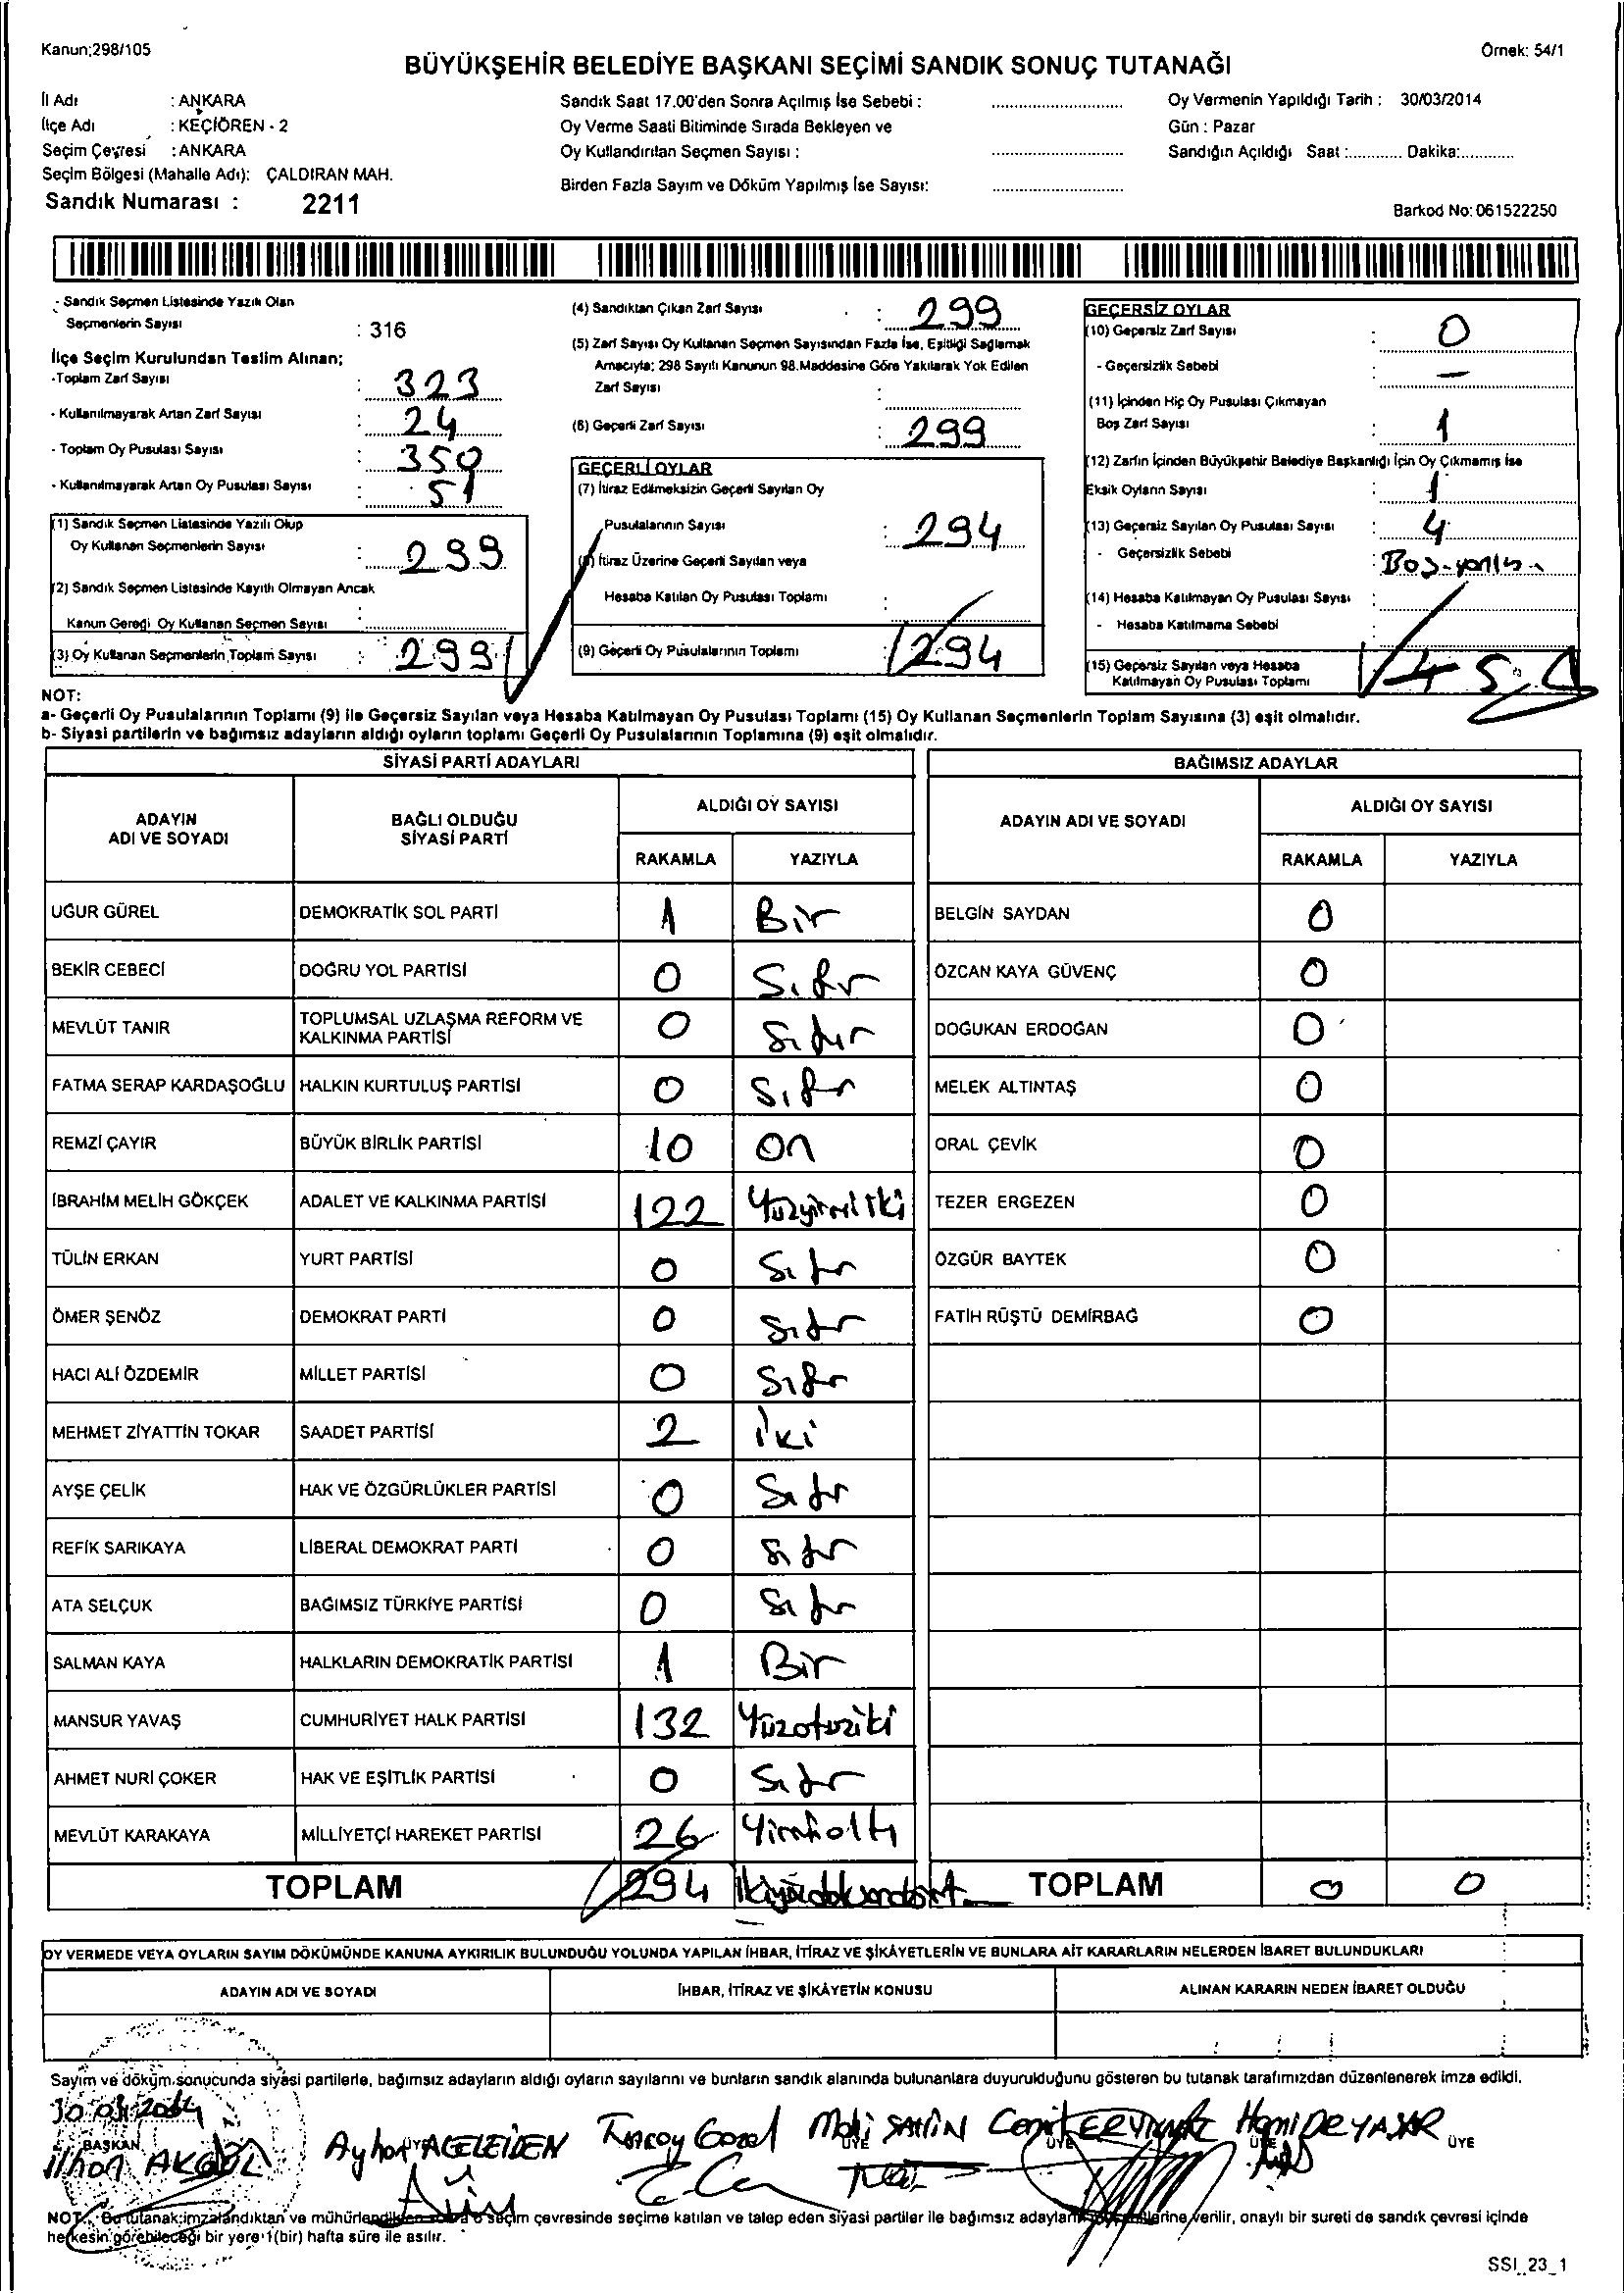 Kanun;298/105
Örnek: 54/1
BÜYÜKŞEHİR BELEDİYE BAŞKANI SEÇİMİ SANDIK SONUÇ TUTANAĞI
İl Adı : ANKARA
İlçe Adı : KEÇİÖREN - 2
Seçim Çevresi : ANKARA
Seçim Bölgesi (Mahalle Adı): ÇALDIRAN MAH.
Sandık Numarası : 2211
Sandık Saat 17.00'den Sonra Açılmış İse Sebebi :
Oy Verme Saati Bitiminde Sırada Bekleyen ve
Oy Kullandırılan Seçmen Sayısı :
Birden Fazla Sayım ve Döküm Yapılmış İse Sayısı:
Oy Vermenin Yapıldığı Tarih : 30/03/2014
Gün : Pazar
Sandığın Açıldığı Saat :............ Dakika:............
Barkod No: 061522250
- Sandık Seçmen Listesinde Yazılı Olan
Seçmenlerin Sayısı : 316
İlçe Seçim Kurulundan Teslim Alınan;
-Toplam Zarf Sayısı : 323
- Kullanılmayarak Artan Zarf Sayısı : 24
- Toplam Oy Pusulası Sayısı : 350
- Kullanılmayarak Artan Oy Pusulası Sayısı : 51
(1) Sandık Seçmen Listesinde Yazılı Olup
Oy Kullanan Seçmenlerin Sayısı : 299
(2) Sandık Seçmen Listesinde Kayıtlı Olmayan Ancak
Kanun Gereği Oy Kullanan Seçmen Sayısı :
(3) Oy Kullanan Seçmenlerin Toplam Sayısı : 299
(4) Sandıktan Çıkan Zarf Sayısı : 299
(5) Zarf Sayısı Oy Kullanan Seçmen Sayısından Fazla İse, Eşitliği Sağlamak
Amacıyla; 298 Sayılı Kanunun 98.Maddesine Göre Yakılarak Yok Edilen
Zarf Sayısı :
(6) Geçerli Zarf Sayısı : 299
GEÇERLİ OYLAR
(7) İtiraz Edilmeksizin Geçerli Sayılan Oy
Pusulalarının Sayısı : 294
(8) İtiraz Üzerine Geçerli Sayılan veya
Hesaba Katılan Oy Pusulası Toplamı :
(9) Geçerli Oy Pusulalarının Toplamı : 294
GEÇERSİZ OYLAR
(10) Geçersiz Zarf Sayısı : 0
- Geçersizlik Sebebi : –
(11) İçinden Hiç Oy Pusulası Çıkmayan
Boş Zarf Sayısı : 1
(12) Zarfın İçinden Büyükşehir Belediye Başkanlığı İçin Oy Çıkmamış İse
Eksik Oyların Sayısı : 1
(13) Geçersiz Sayılan Oy Pusulası Sayısı : 4
- Geçersizlik Sebebi :
(14) Hesaba Katılmayan Oy Pusulası Sayısı :
- Hesaba Katılmama Sebebi :
(15) Geçersiz Sayılan veya Hesaba
Katılmayan Oy Pusulası Toplamı
NOT:
a- Geçerli Oy Pusulalarının Toplamı (9) ile Geçersiz Sayılan veya Hesaba Katılmayan Oy Pusulası Toplamı (15) Oy Kullanan Seçmenlerin Toplam Sayısına (3) eşit olmalıdır.
b- Siyasi partilerin ve bağımsız adayların aldığı oyların toplamı Geçerli Oy Pusulalarının Toplamına (9) eşit olmalıdır.
SİYASİ PARTİ ADAYLARI
ADAYIN ADI VE SOYADI
BAĞLI OLDUĞU SİYASİ PARTİ
ALDIĞI OY SAYISI
RAKAMLA YAZIYLA
UĞUR GÜREL DEMOKRATİK SOL PARTİ 1 Bir
BEKİR CEBECİ DOĞRU YOL PARTİSİ 0 Sıfır
MEVLÜT TANIR TOPLUMSAL UZLAŞMA REFORM VE KALKINMA PARTİSİ 0 Sıfır
FATMA SERAP KARDAŞOĞLU HALKIN KURTULUŞ PARTİSİ 0 Sıfır
REMZİ ÇAYIR BÜYÜK BİRLİK PARTİSİ 10 on
İBRAHİM MELİH GÖKÇEK ADALET VE KALKINMA PARTİSİ 122 Yüzyirmi iki
TÜLİN ERKAN YURT PARTİSİ 0 Sıfır
ÖMER ŞENÖZ DEMOKRAT PARTİ 0 Sıfır
HACI ALİ ÖZDEMİR MİLLET PARTİSİ 0 Sıfır
MEHMET ZİYATTİN TOKAR SAADET PARTİSİ 2 iki
AYŞE ÇELİK HAK VE ÖZGÜRLÜKLER PARTİSİ 0 Sıfır
REFİK SARIKAYA LİBERAL DEMOKRAT PARTİ 0 Sıfır
ATA SELÇUK BAĞIMSIZ TÜRKİYE PARTİSİ 0 Sıfır
SALMAN KAYA HALKLARIN DEMOKRATİK PARTİSİ 1 Bir
MANSUR YAVAŞ CUMHURİYET HALK PARTİSİ 132 Yüzotuziki
AHMET NURİ ÇOKER HAK VE EŞİTLİK PARTİSİ 0 Sıfır
MEVLÜT KARAKAYA MİLLİYETÇİ HAREKET PARTİSİ 26 Yirmialtı
TOPLAM 294 ikiyüzdoksandört
BAĞIMSIZ ADAYLAR
ADAYIN ADI VE SOYADI
ALDIĞI OY SAYISI
RAKAMLA YAZIYLA
BELGİN SAYDAN 0
ÖZCAN KAYA GÜVENÇ 0
DOĞUKAN ERDOĞAN 0
MELEK ALTINTAŞ 0
ORAL ÇEVİK 0
TEZER ERGEZEN 0
ÖZGÜR BAYTEK 0
FATİH RÜŞTÜ DEMİRBAĞ 0
TOPLAM 0 0
OY VERMEDE VEYA OYLARIN SAYIM DÖKÜMÜNDE KANUNA AYKIRILIK BULUNDUĞU YOLUNDA YAPILAN İHBAR, İTİRAZ VE ŞİKAYETLERİN VE BUNLARA AİT KARARLARIN NELERDEN İBARET BULUNDUKLARI
ADAYIN ADI VE SOYADI
İHBAR, İTİRAZ VE ŞİKAYETİN KONUSU
ALINAN KARARIN NEDEN İBARET OLDUĞU
Sayım ve döküm sonucunda siyasi partilerle, bağımsız adayların aldığı oyların sayılarını ve bunların sandık alanında bulunanlara duyurulduğunu gösteren bu tutanak tarafımızdan düzenlenerek imza edildi.
BAŞKAN ÜYE ÜYE ÜYE ÜYE ÜYE
ilhan AKGÜL
NOT: Bu tutanak imzalandıktan ve mühürlendikten sonra o seçim çevresinde seçime katılan ve talep eden siyasi partiler ile bağımsız adayların verilir, onaylı bir sureti de sandık çevresi içinde
herkesin görebileceği bir yere 1(bir) hafta süre ile asılır.
SSI_23_1